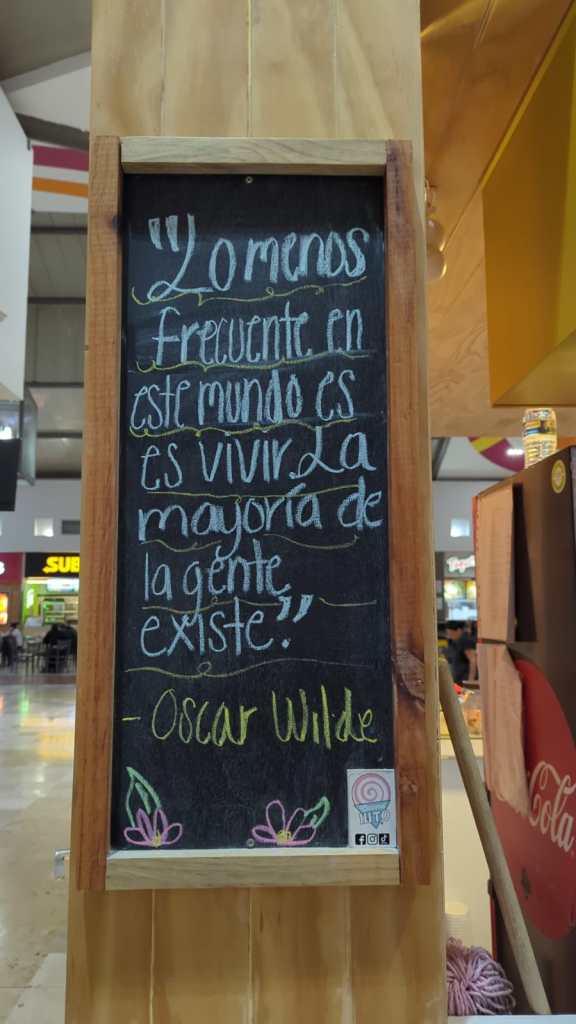 "Lo menos
frecuente en
este mundo es
es vivir. La
mayoría de
la gente
existe".
- Oscar Wilde
SUB
Cola